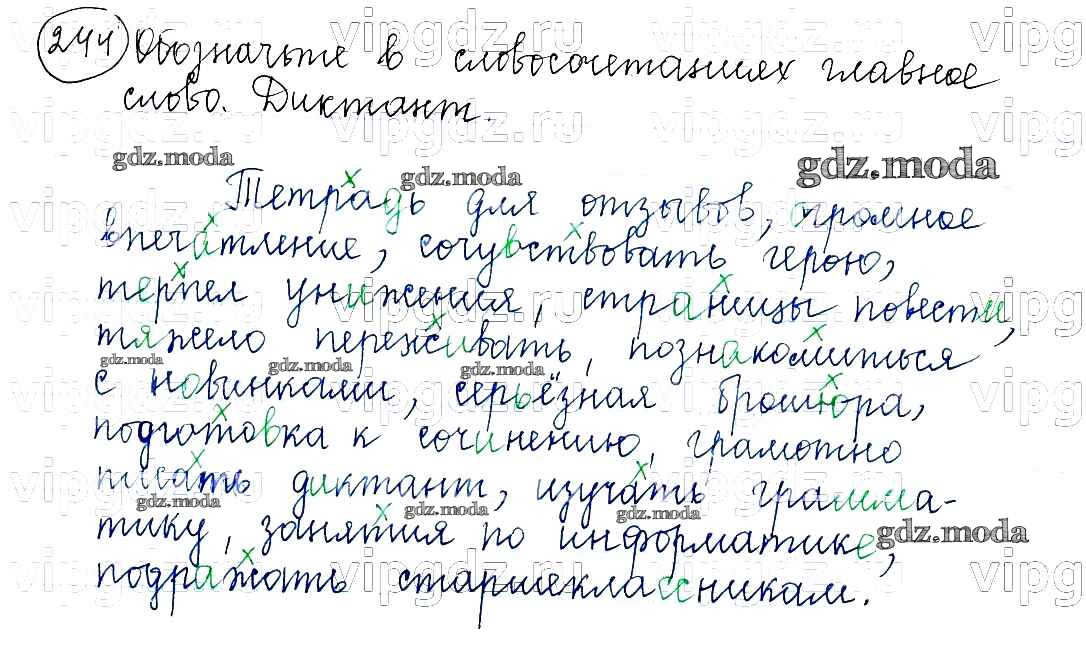 244 Обозначьте в словосочетаниях главное
слово. Диктант.
Тетрадь для отзывов, огромное
впечатление, сочувствовать герою,
терпел унижения, страницы повести,
тяжело переживать, познакомиться
с новинками, серьёзная брошюра,
подготовка к сочинению, грамотно
писать диктант, изучать грамма-
тику, занятия по информатике,
подражать старшеклассникам.